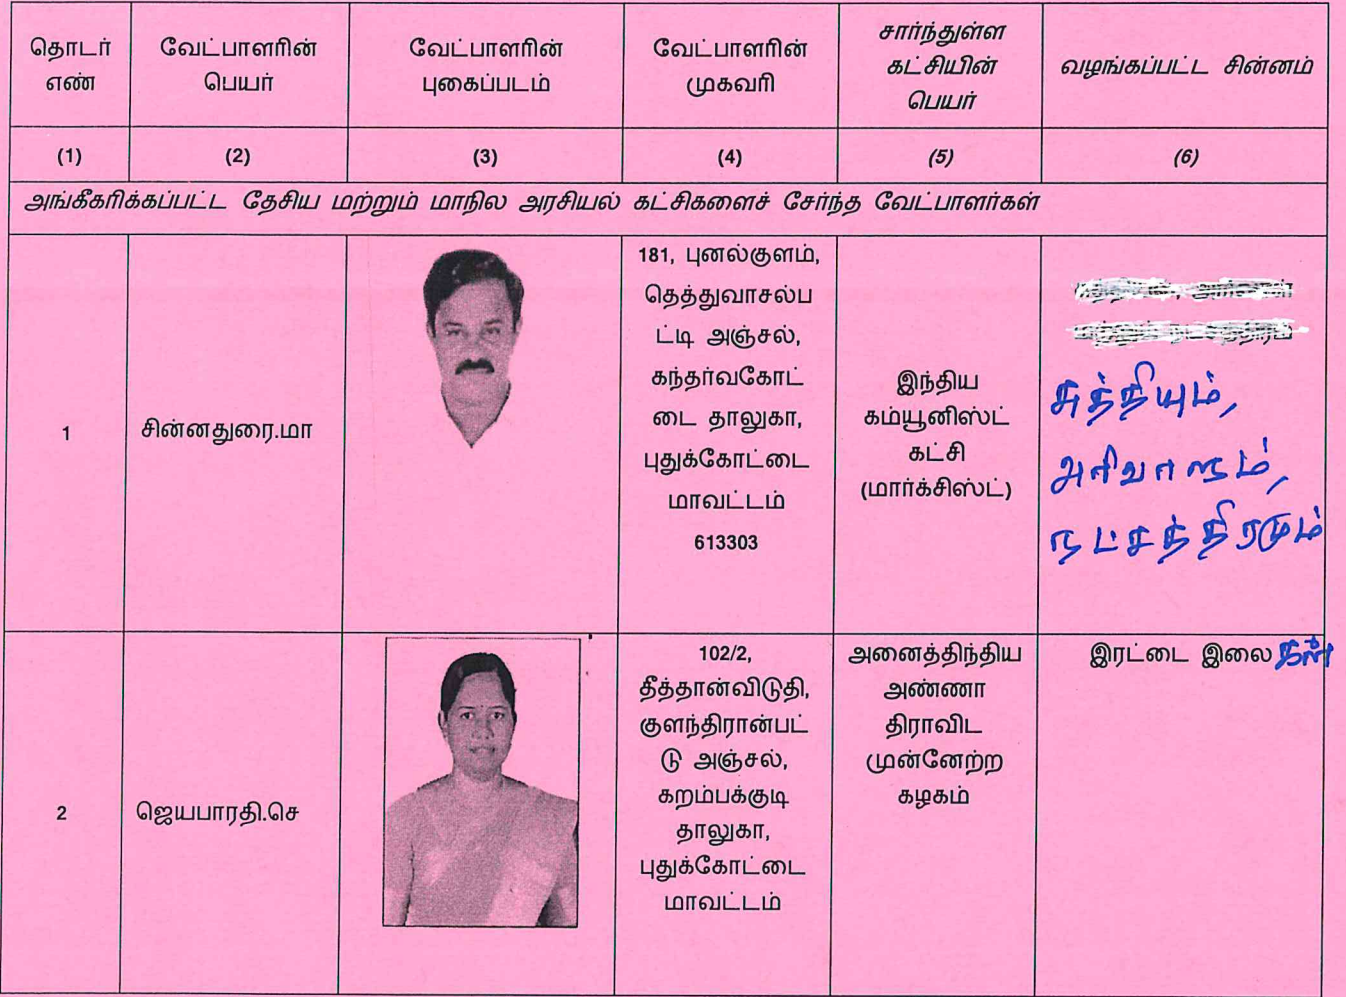 தொடர் எண்
வேட்பாளரின் பெயர்
வேட்பாளரின் புகைப்படம்
வேட்பாளரின் முகவரி
சார்ந்துள்ள கட்சியின் பெயர்
வழங்கப்பட்ட சின்னம்
(1)
(2)
(3)
(4)
(5)
(6)
அங்கீகரிக்கப்பட்ட தேசிய மற்றும் மாநில அரசியல் கட்சிகளைச் சேர்ந்த வேட்பாளர்கள்
1
சின்னதுரை.மா
181, புனல்குளம்,
தெத்துவாசல்ப
ட்டி அஞ்சல்,
கந்தர்வகோட்
டை தாலுகா,
புதுக்கோட்டை
மாவட்டம்
613303
இந்திய
கம்யூனிஸ்ட்
கட்சி
(மார்க்சிஸ்ட்)
சுத்தியும்,
அரிவாளும்,
நட்சத்திரமும்
2
ஜெயபாரதி.செ
102/2,
தீத்தான்விடுதி,
குளந்திரான்பட்
டு அஞ்சல்,
கறம்பக்குடி
தாலுகா,
புதுக்கோட்டை
மாவட்டம்
அனைத்திந்திய
அண்ணா
திராவிட
முன்னேற்ற
கழகம்
இரட்டை இலைகள்